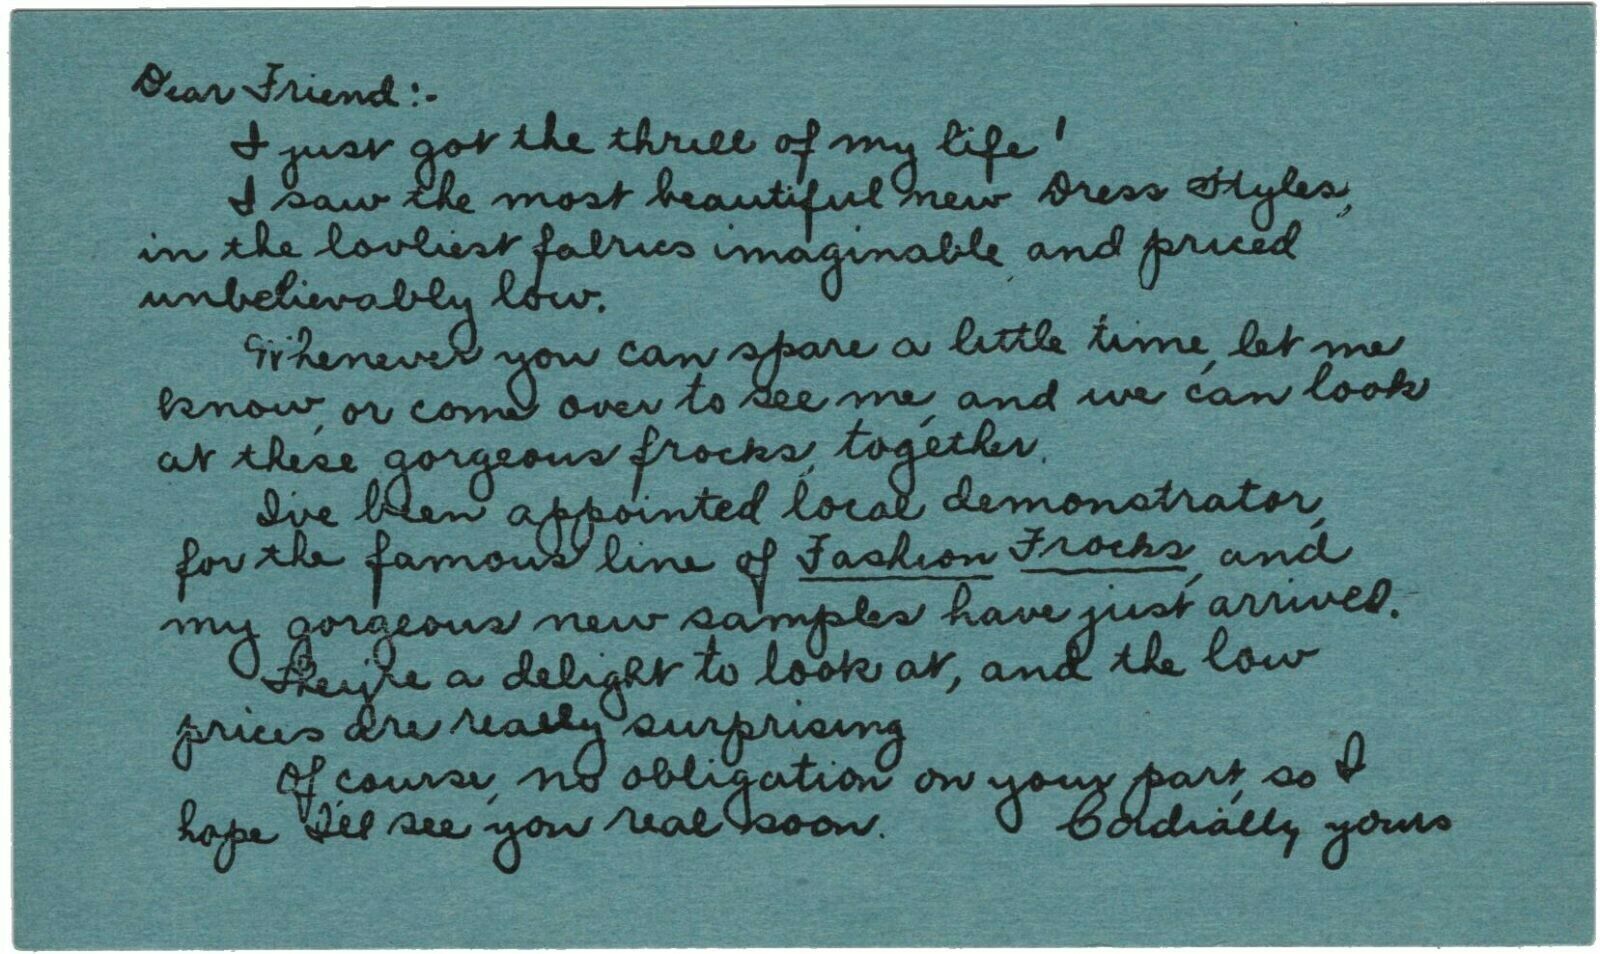 Dear Friend:-
I just got the thrill of my life!
I saw the most beautiful new Dress Styles,
in the lovliest fabrics imaginable, and priced
unbelievably low.
Whenever you can spare a little time, let me
know, or come over to see me, and we can look
at these gorgeous frocks, together.
I've been appointed local demonstrator,
for the famous line of Fashion Frocks, and
my gorgeous new samples have just arrived.
They're a delight to look at, and the low
prices are really surprising
Of course, no obligation on your part, so I
hope I'll see you real soon. Cordially yours